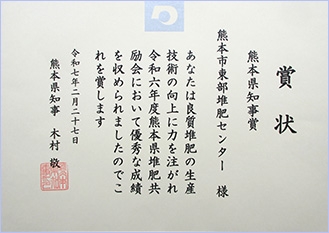 賞状
熊本県知事賞
熊本市東部堆肥センター 様
あなたは良質堆肥の生産
技術の向上に力を注がれ
令和六年度熊本県堆肥共
励会において優秀な成績
を収められましたのでこ
れを賞します
令和七年二月二十七日
熊本県知事 木村 敬